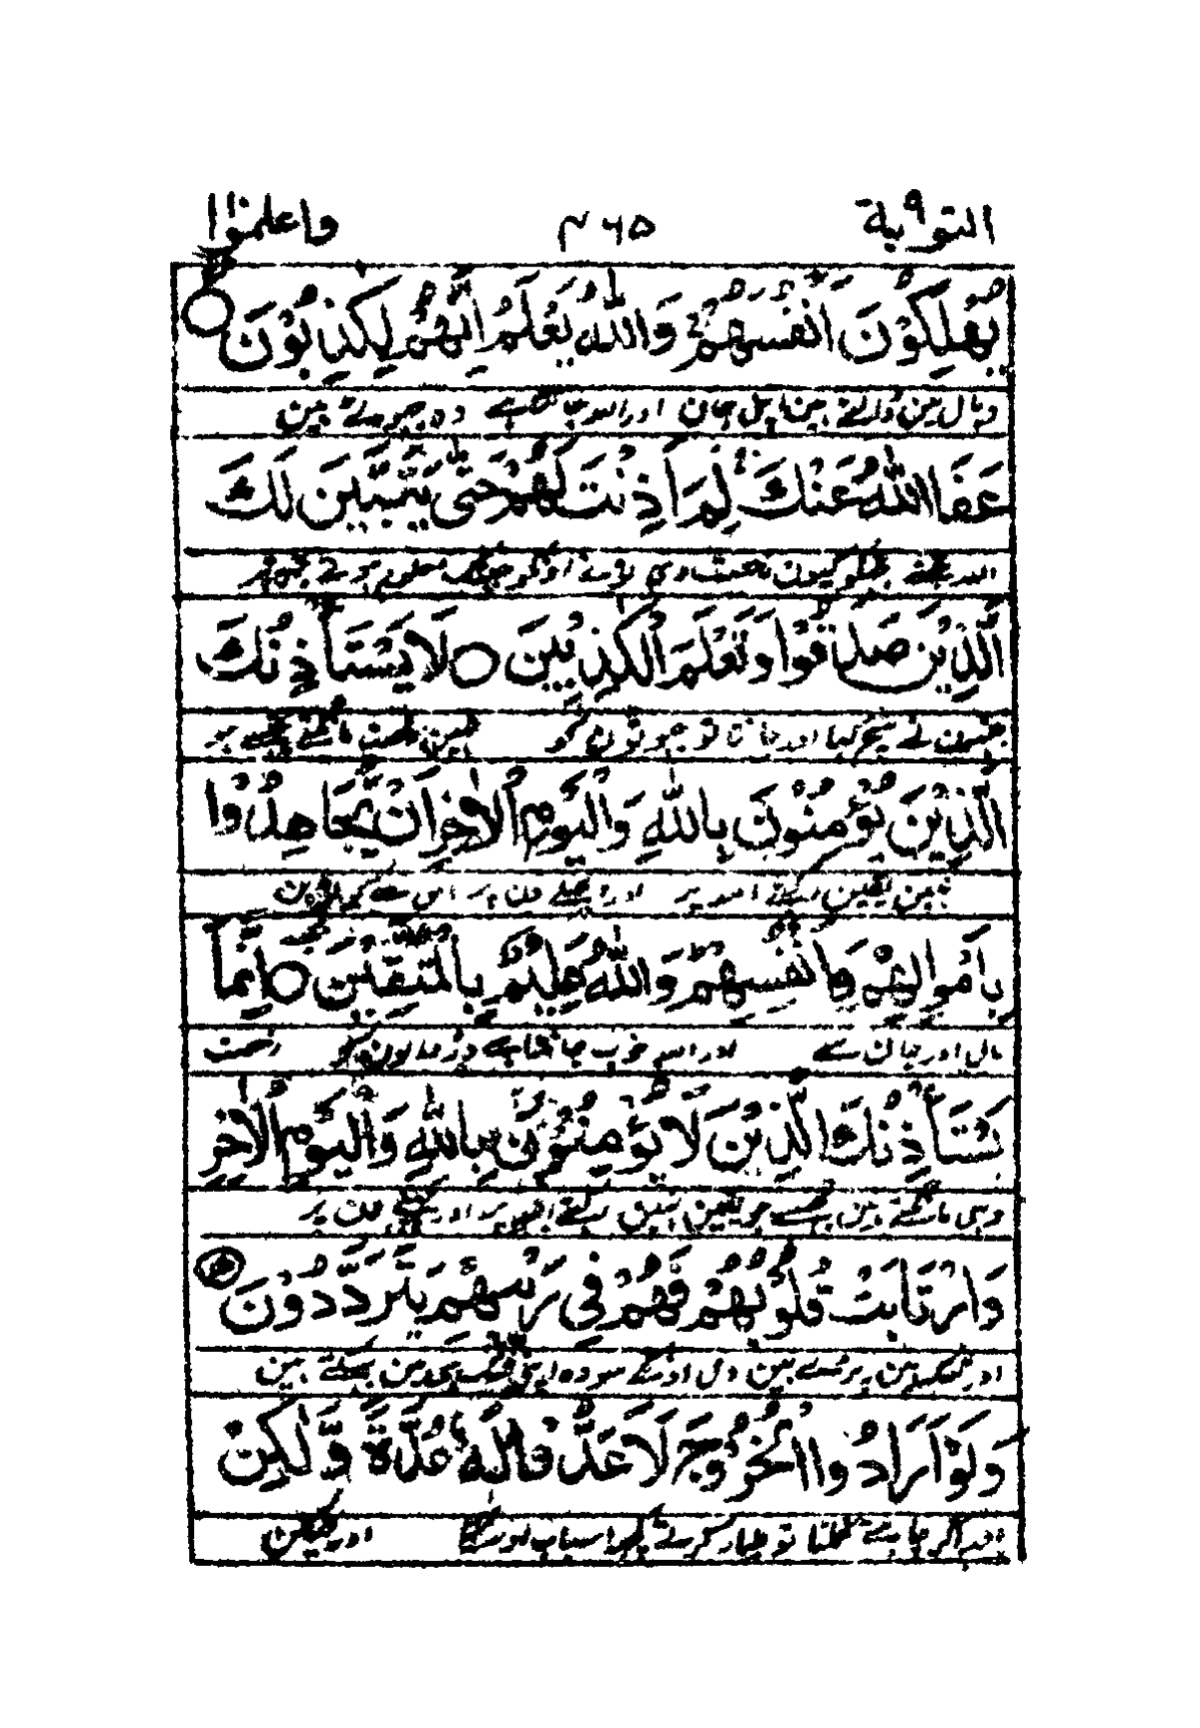 التوبة ٩ ٣٦٥ واعلموا
يُهْلِكُوْنَ اَنْفُسَهُمْ وَاللّٰهُ يَعْلَمُ اِنَّهُمْ لَكٰذِبُوْنَ
وبال مین ڈالتے ہین اپنی جان اور اللہ جانتا ہے وہ جھوٹے ہین
عَفَا اللّٰهُ عَنْكَ لِمَ اَذِنْتَ لَهُمْ حَتّٰى يَتَبَيَّنَ لَكَ
اللہ بخشے تجکو کیون رخصت دی تونے اونکو جب تک معلوم ہوتے تجھ پر
الَّذِيْنَ صَدَقُوْا وَتَعْلَمَ الْكٰذِبِيْنَ لَا يَسْتَاْذِنُكَ
جنہون نے سچ کہا اور جانتا تو جھوٹون کو نہین رخصت مانگتے تجھسے جو
الَّذِيْنَ يُؤْمِنُوْنَ بِاللّٰهِ وَالْيَوْمِ الْاٰخِرِ اَنْ يُّجَاهِدُوْا
ہین یقین رکھتے اللہ پر اور پچھلے دن پر اس سے کہ لڑین
بِاَمْوَالِهِمْ وَاَنْفُسِهِمْ وَاللّٰهُ عَلِيْمٌ بِالْمُتَّقِيْنَ اِنَّمَا
مال اور جان سے اور اللہ خوب جانتا ہے ڈر والون کو رخصت
يَسْتَاْذِنُكَ الَّذِيْنَ لَا يُؤْمِنُوْنَ بِاللّٰهِ وَالْيَوْمِ الْاٰخِرِ
وہی مانگتے ہین تجھسے جو یقین نہین رکھتے اللہ پر اور پچھلے دن پر
وَارْتَابَتْ قُلُوْبُهُمْ فَهُمْ فِيْ رَيْبِهِمْ يَتَرَدَّدُوْنَ
اور شک مین پڑے ہین دل اونکے سو وہ اپنی شک ہی مین بھٹکتے ہین
وَلَوْ اَرَادُوا الْخُرُوْجَ لَاَعَدُّوْا لَهٗ عُدَّةً وَّلٰكِنْ
اور اگر چاہتے نکلنا تو طیار کرتے کچھ اسباب اور لیکن